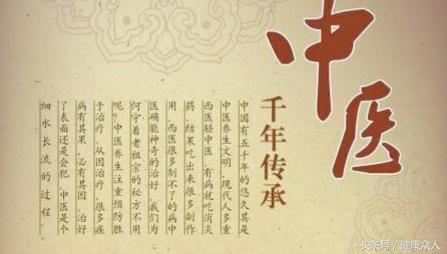 中医
千年传承
中国有五千年的悠久其是
中医养生文明，现代人多重
西医轻中医，有病就吃消炎
药，结果吃出来很多制作
用，西医很多制不了的病中
医确能神奇的治好，我们为
何守着老祖宗的秘方不用
呢？中医养生注重预防胜
于治疗，从因治疗，很多疾
病有其果，必有其因，治好
了表面还是会犯，中医是个
细水长流的过程
头条号/健康众人